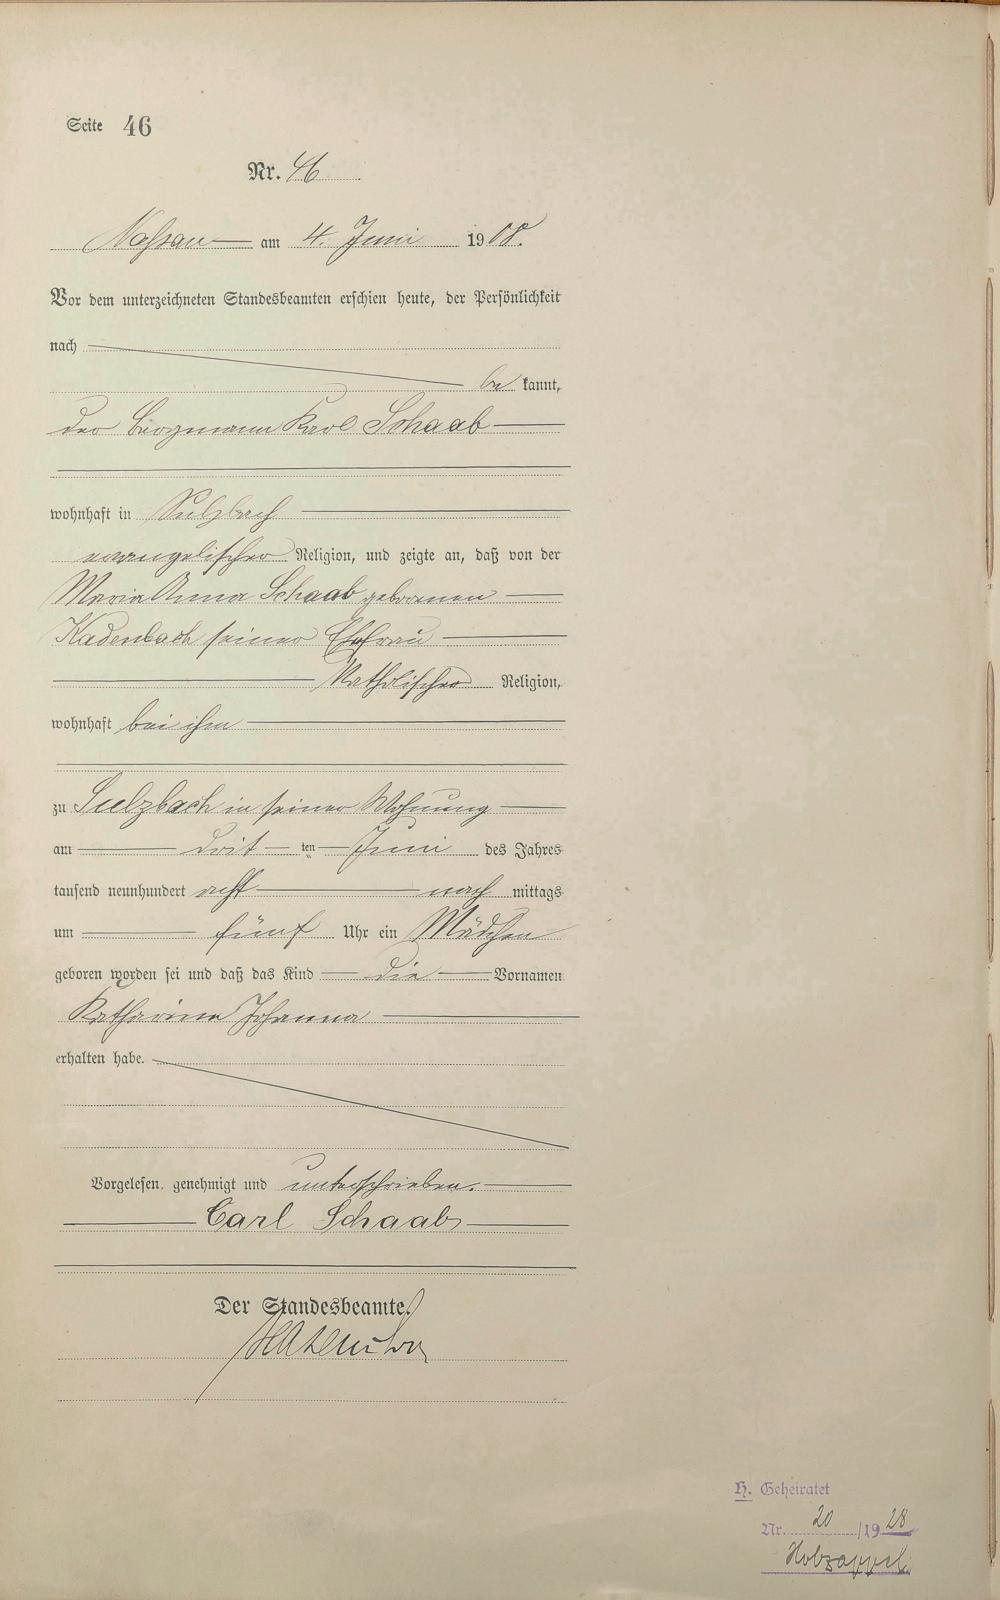 Seite 46
Nr. 46
Nassau am 4. Juni 1908.
Vor dem unterzeichneten Standesbeamten erschien heute, der Persönlichkeit
nach
be kannt,
der Bergmann Karl Schaab
wohnhaft in Sulzbach
evangelischer Religion, und zeigte an, daß von der
Maria Anna Schaab geborenen
Kadenbach seiner Ehefrau
katholischer Religion,
wohnhaft bei ihm
zu Sulzbach in seiner Wohnung
am drit ten Juni des Jahres
tausend neunhundert acht nach mittags
um fünf Uhr ein Mädchen
geboren worden sei und daß das Kind die Vornamen
Katharina Johanna
erhalten habe.
Vorgelesen, genehmigt und unterschrieben.
Carl Schaab
Der Standesbeamte.
H. Geheiratet
Nr. 20 /1928
Holzappel